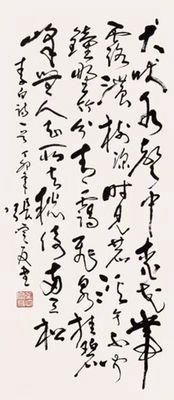 犬吠水聲中桃花帶
露濃樹深時見鹿溪午不聞
鐘野竹分青靄飛泉掛碧
峰無人知所去愁倚兩三松
李白詩一首